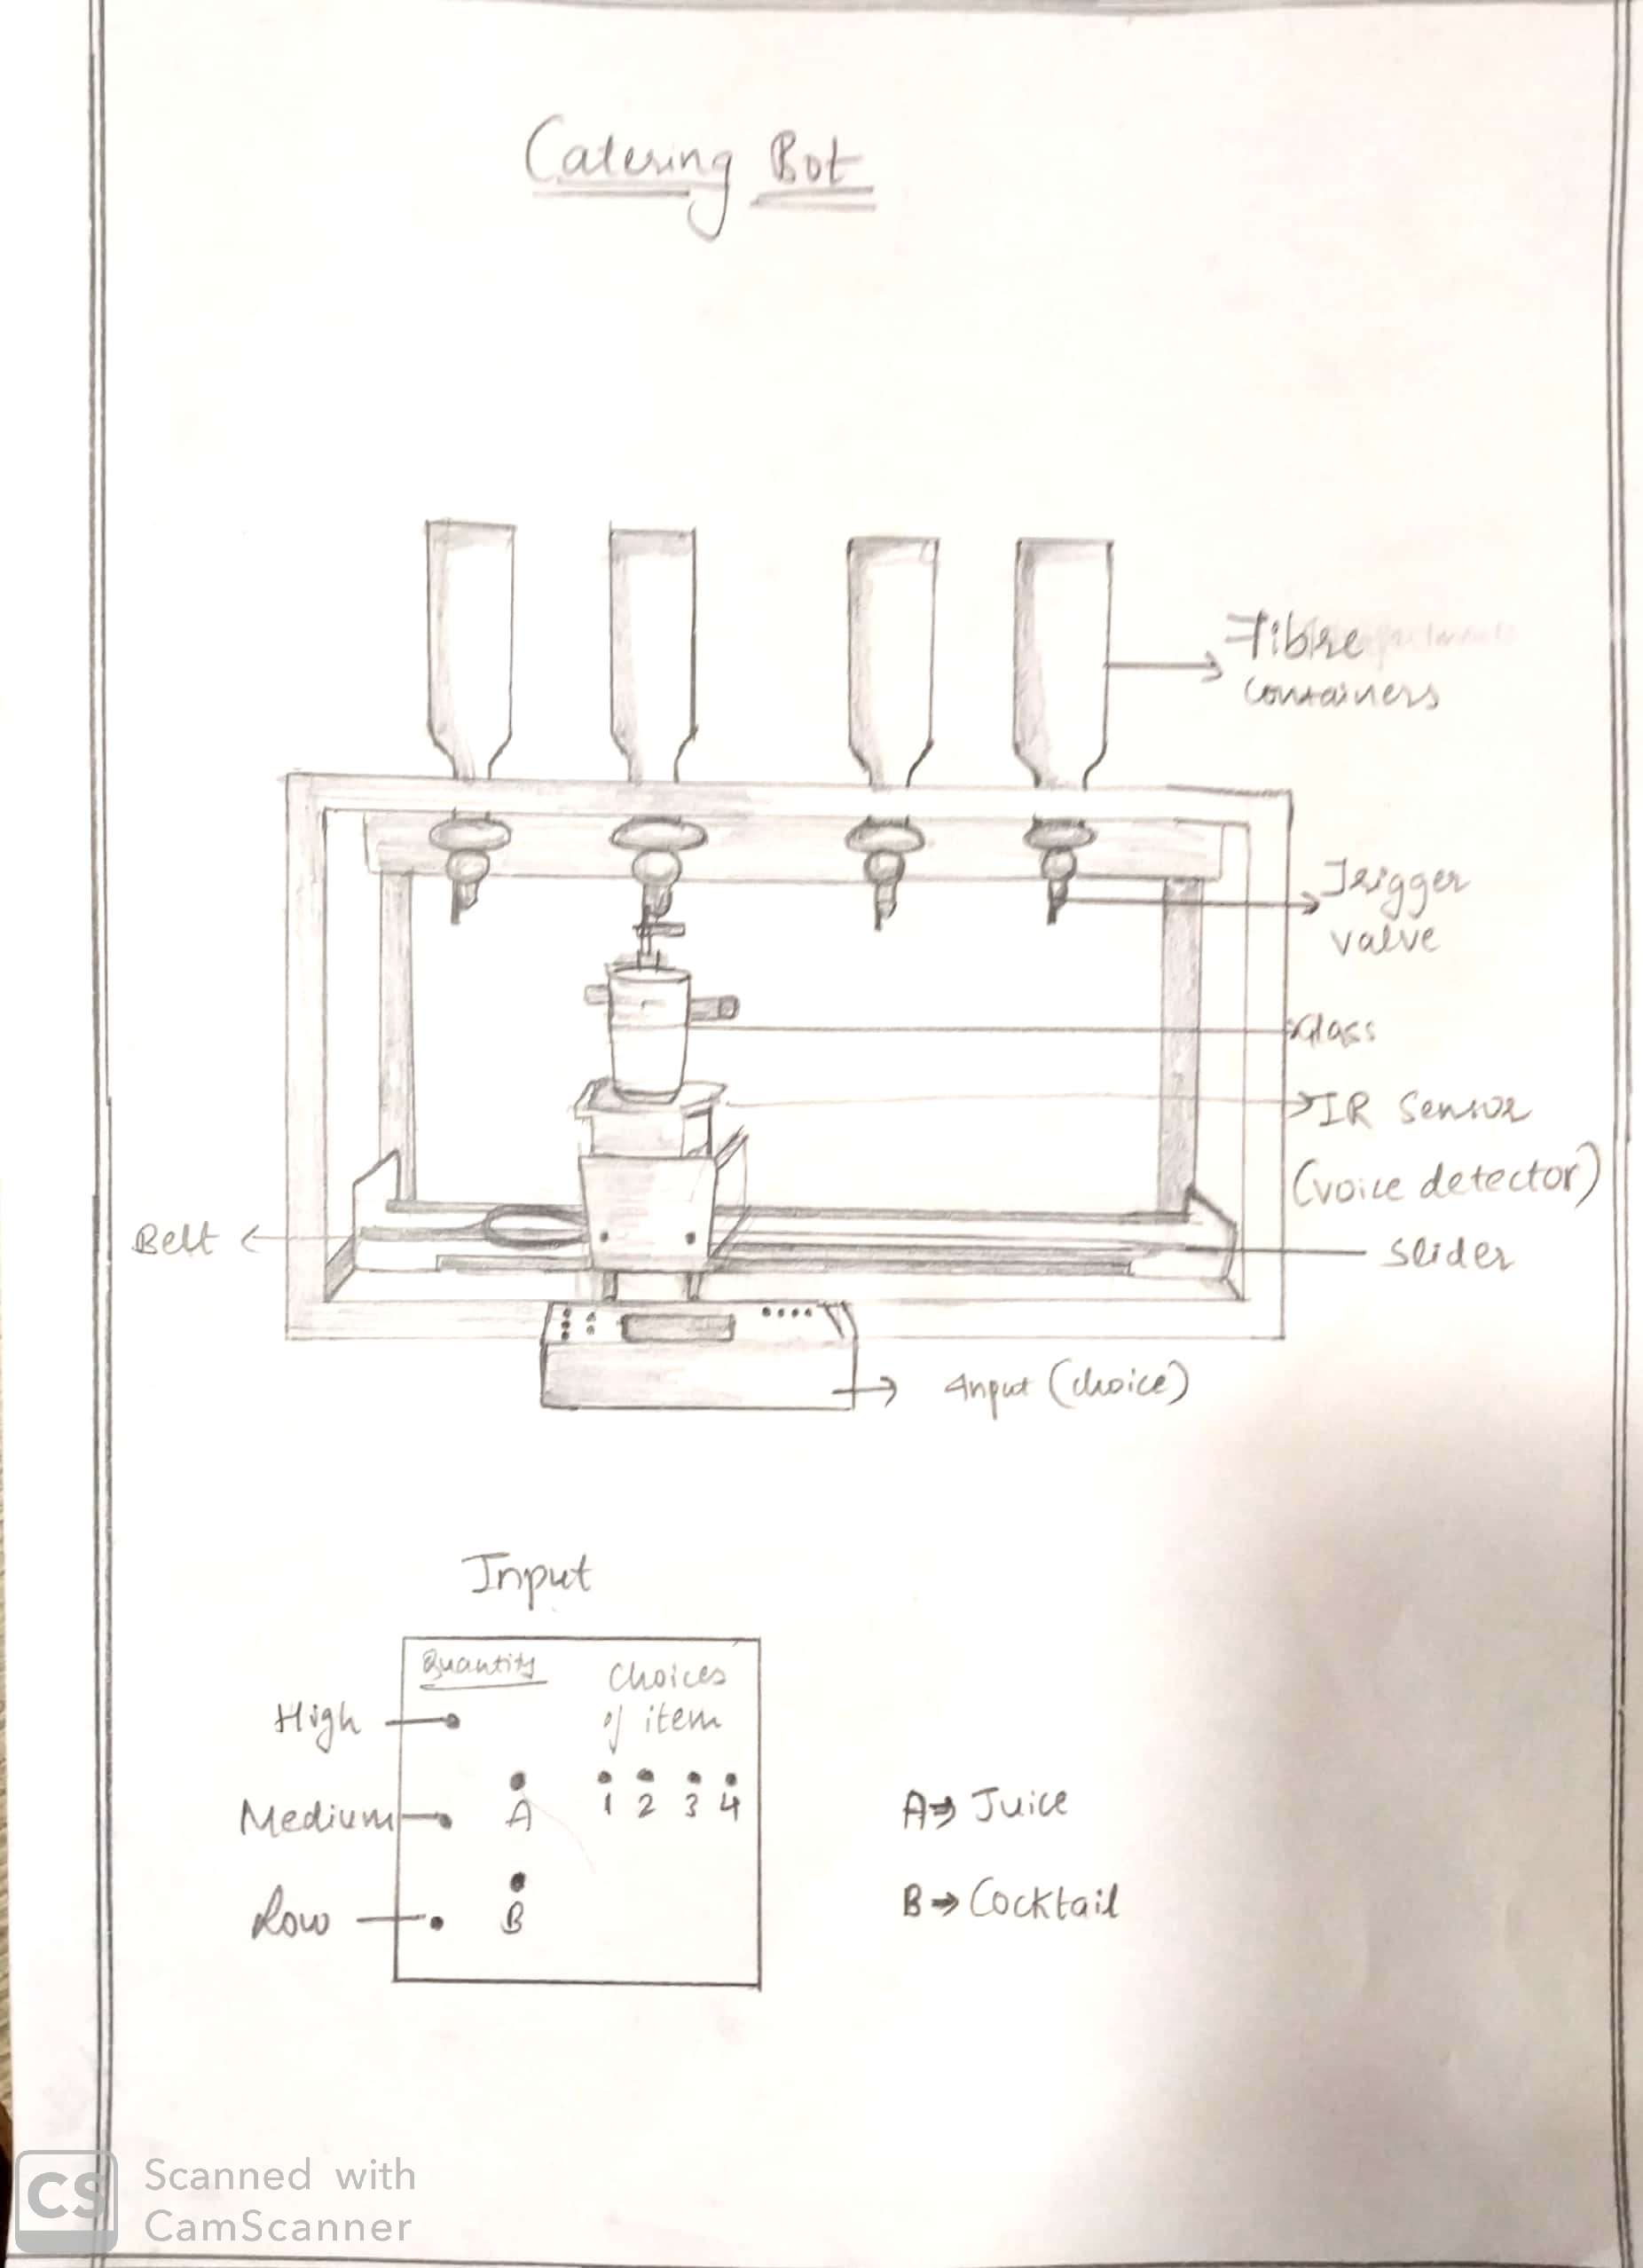 Catering Bot
Fibre
containers
Trigger
valve
Glass
IR Sensor
(voice detector)
Belt
Slider
Input (choice)
Input
Quantity
Choices
of item
High
Medium
Low
A
B
1 2 3 4
A⇒ Juice
B⇒ Cocktail
CS
Scanned with
CamScanner